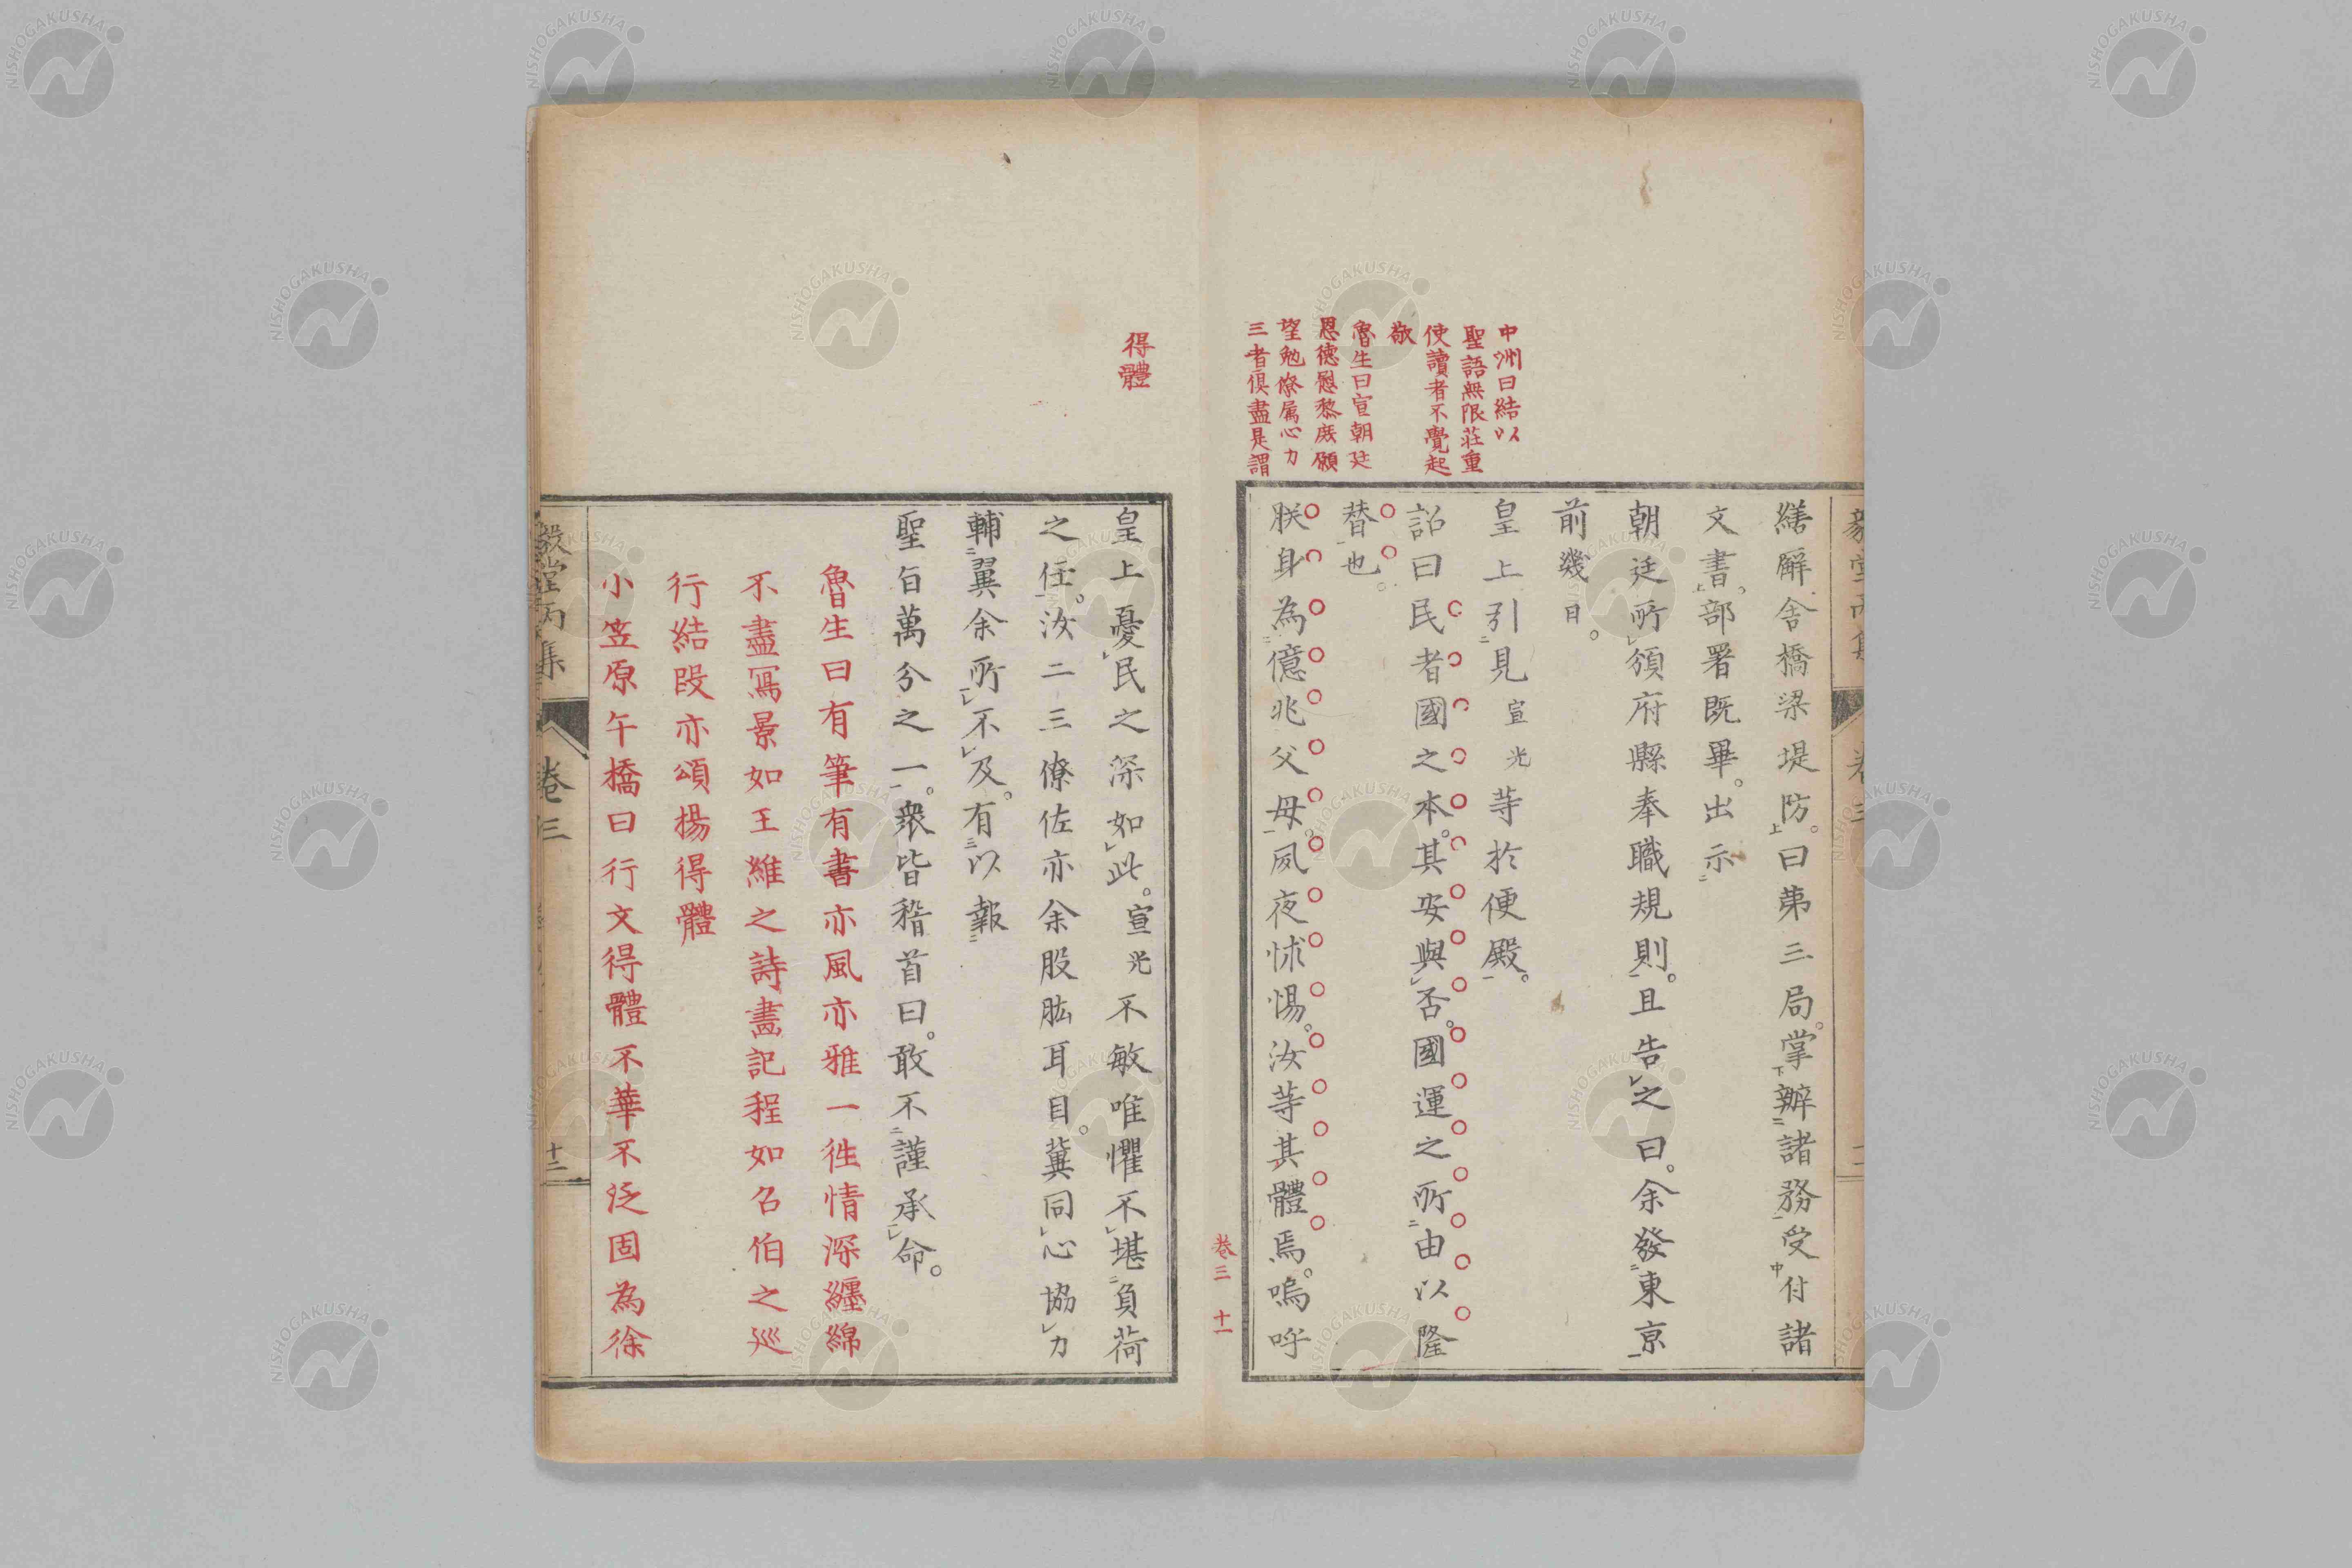 中洲曰結以
聖語無限莊重
使讀者不覺起
敬
魯生曰宣朝廷
恩德慰黎庶願
望勉僚属心力
三者俱盡是謂
得體
繕廨舍橋梁堤防。曰第三局。掌辦諸務受付諸
文書。部署既畢。出示
朝廷所頒府縣奉職規則。且告之曰。余發東京
前幾日。
皇上引見宣光等於便殿。
詔曰民者國之本。其安與否。國運之所由以隆
替也。
朕身為億兆父母。夙夜怵惕。汝等其體焉。嗚呼
卷三 十一
皇上憂民之深如此。宣光不敏唯懼不堪負荷
之任。汝二三僚佐亦余股肱耳目。冀同心協力
輔翼余所不及。有以報
聖旨萬分之一。衆皆稽首曰。敢不謹承命。
魯生曰有筆有書亦風亦雅一往情深纏綿
不盡寫景如王維之詩畫記程如召伯之巡
行結段亦頌揚得體
小笠原午橋曰行文得體不華不泛固為徐
毅堂丙集 卷三 十二